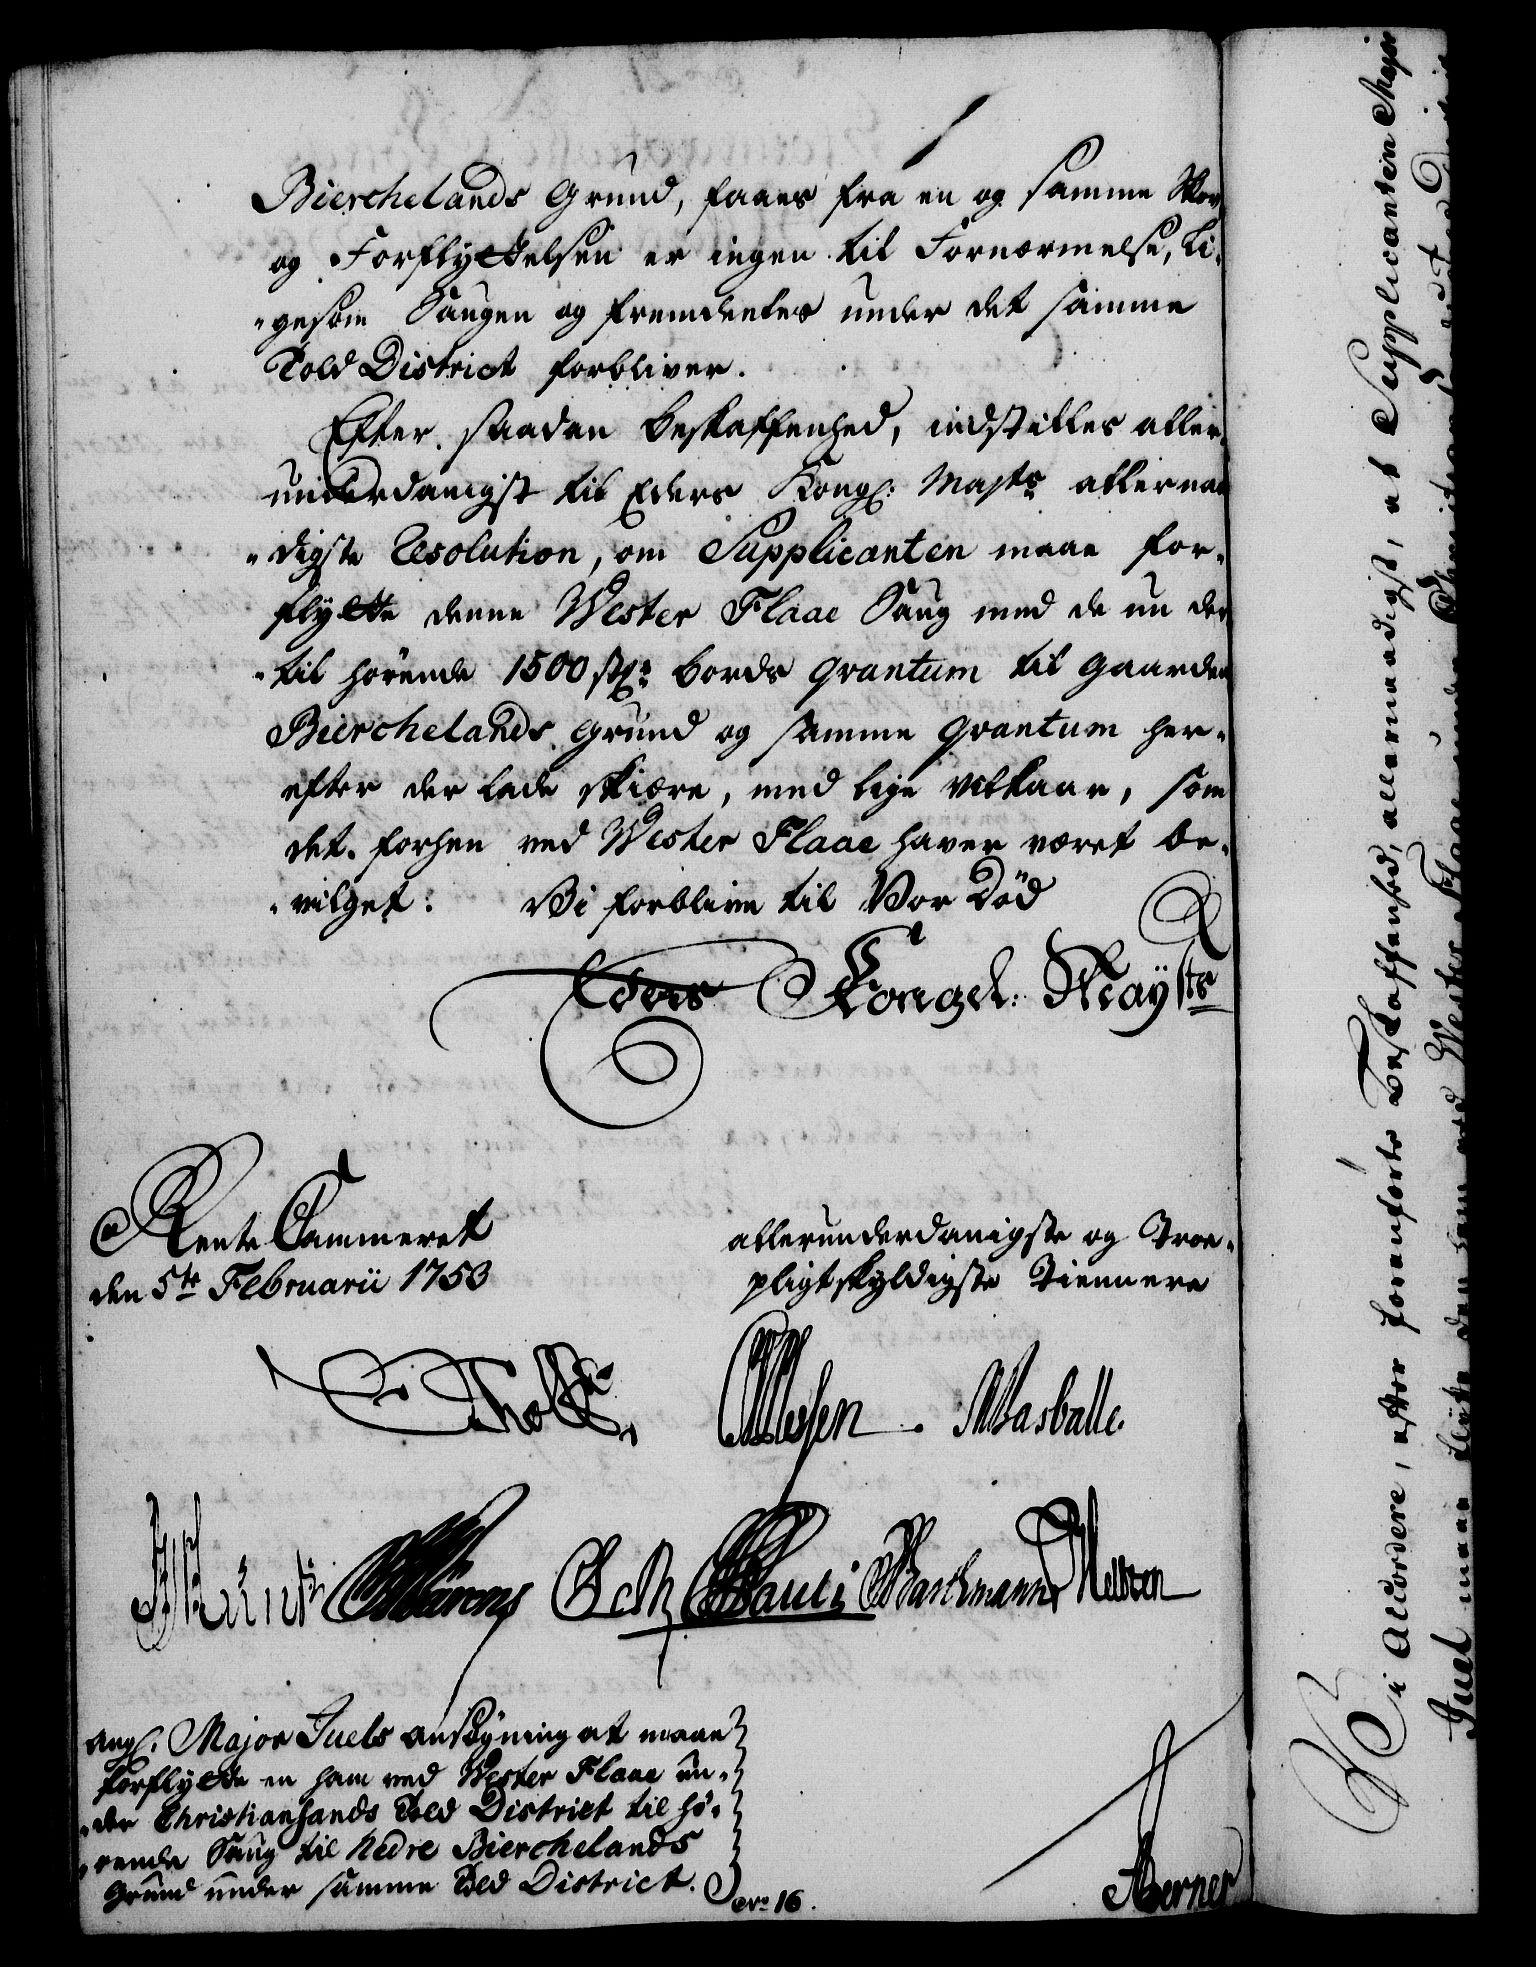 Bierchelands Grund, faaes fra en og samme Skov
og Forflyttelsen er ingen til Fornærmelse, li-
-gesom Saugen og fremdeeles under det samme
Told District forbliver.
Efter saadan beskaffenhed, indstilles aller-
underdanigst til Eders Kongl: Mayts allernaa-
-digste Resolution, om Supplicanten maae for-
flytte denne Wester Flaae Saug med de nu der
-til hörende 1500 st: bords qvantum til gaarden
Bierchelands Grund og samme qvantum her-
efter der lade skiære, med lige Vilkaar, som
det forhen ved Wester Flaae haver været be-
-vilget: Vi forblive til Vor Död
Eders Kongel: Mayts
Rente Cammeret
den 5te Februarii 1753
allerunderdanigste og Troe-
pligtskyldigste Tiennere
Holst
Massballe.
Pauli Barthmann
ang: Major Juels ansögning at maae
forflytte en ham ved Wester Flaae un-
-der Christiansands Told District til hö-
-rende Saug til Nedre Bierchelands
Grund under samme Told District.
No 16.
Berner
Vi accordere, efter foranförte Beskaffenhed, allernaadigst, at Supplicanten Major
Juel maae flötte den ham ved Wester Flaae under Christiansands Told District